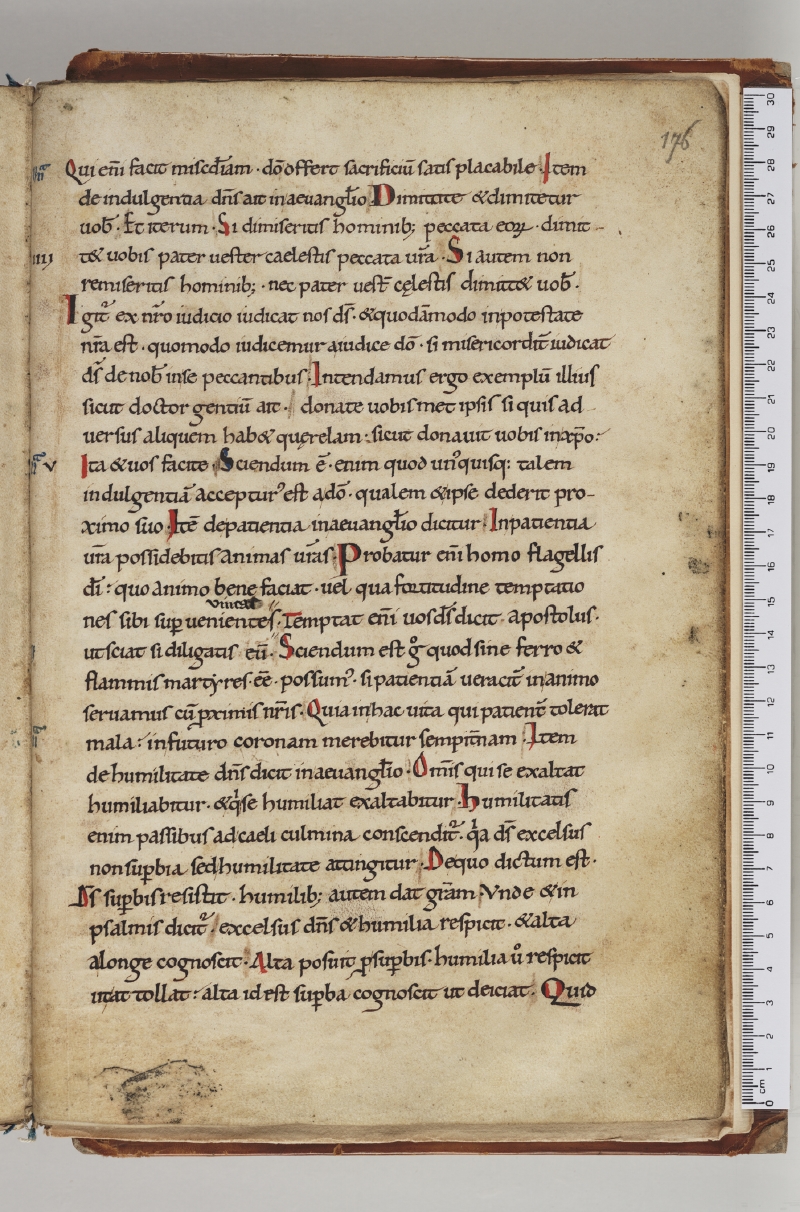 176
Qui eni̅ facit misc̅diam · do̅ offert sacrificiu̅ satis placabile · Item
de indulgentia dn̅s ait in aeuangl̅io Dimittite & dimitetur
uob̅ · Et iterum · Si dimiseritis hominib; peccata eoꝝ · dimit-
iiij t& uobis pater uester caelestis peccata ur̅a · Si autem non
remiseritis hominib; · nec pater uest̅ cęlestis dimitt& uob̅ ·
Igit᷑ ex nr̅o iudicio iudicat nos ds̅ · & quoda̅modo in potestate
nr̅a est · quomodo iudicemur a iudice do̅ · si misericordit̅ iudicat
ds̅ de nob̅ in se peccantibus · Intendamus ergo exemplu̅ illius
sicut doctor gentiu̅ ait · donate uobis met ipsis si quis ad
uersus aliquem hab& quęrelam : sicut donauit uobis in xp̅o :
v Ita & uos facite · Sciendum e̅ · enim quod un᷒quisq: talem
indulgentia̅ accepturꝰ est a do̅ · qualem & ipse dederit pro-
ximo suo · Ite̅ de patientia in aeuangl̅io dicitur · In patientia
ur̅a possidebitis animas ur̅as · Probatur eni̅ homo flagellis
di̅ : quo animo bene faciat · uel qua fortitudine temptatio
nes sibi suꝑuenientes · Temptat eni̅ uos ds̅ dicit apostolus ·
ut sciat si diligatis eu̅ · Sciendum est g̊ quod sine ferro &
flammis martyres ee̅ · possumꝰ · si patientia̅ ueracit̅ in animo
seruamus cu̅ ꝓximis nr̅is · Quia in hac uita qui patient̅ tolerat
mala : in futuro coronam merebitur sempit̅nam · Item
de humilitate dn̅s dicit in aeuangl̅io · Omi̅s qui se exaltat
humiliabitur · & q̓ se humiliat exaltabitur · Humilitatis
enim passibus ad caeli culmina conscendit᷑ · q̓a ds̅ excelsus
non suꝑbia sed humilitate attingitur · De quo dictum est ·
Ds̅ suꝑbis resistit · humilib; autem dat gr̅am Vnde & in
psalmis dicit᷑ · excelsus dn̅s & humilia respicit · & alta
a longe cognoscit · Alta posuit ꝓ suꝑbis · humilia u̓ respicit
ut attollat : alta id est suꝑba cognoscit ut deiciat · Quid